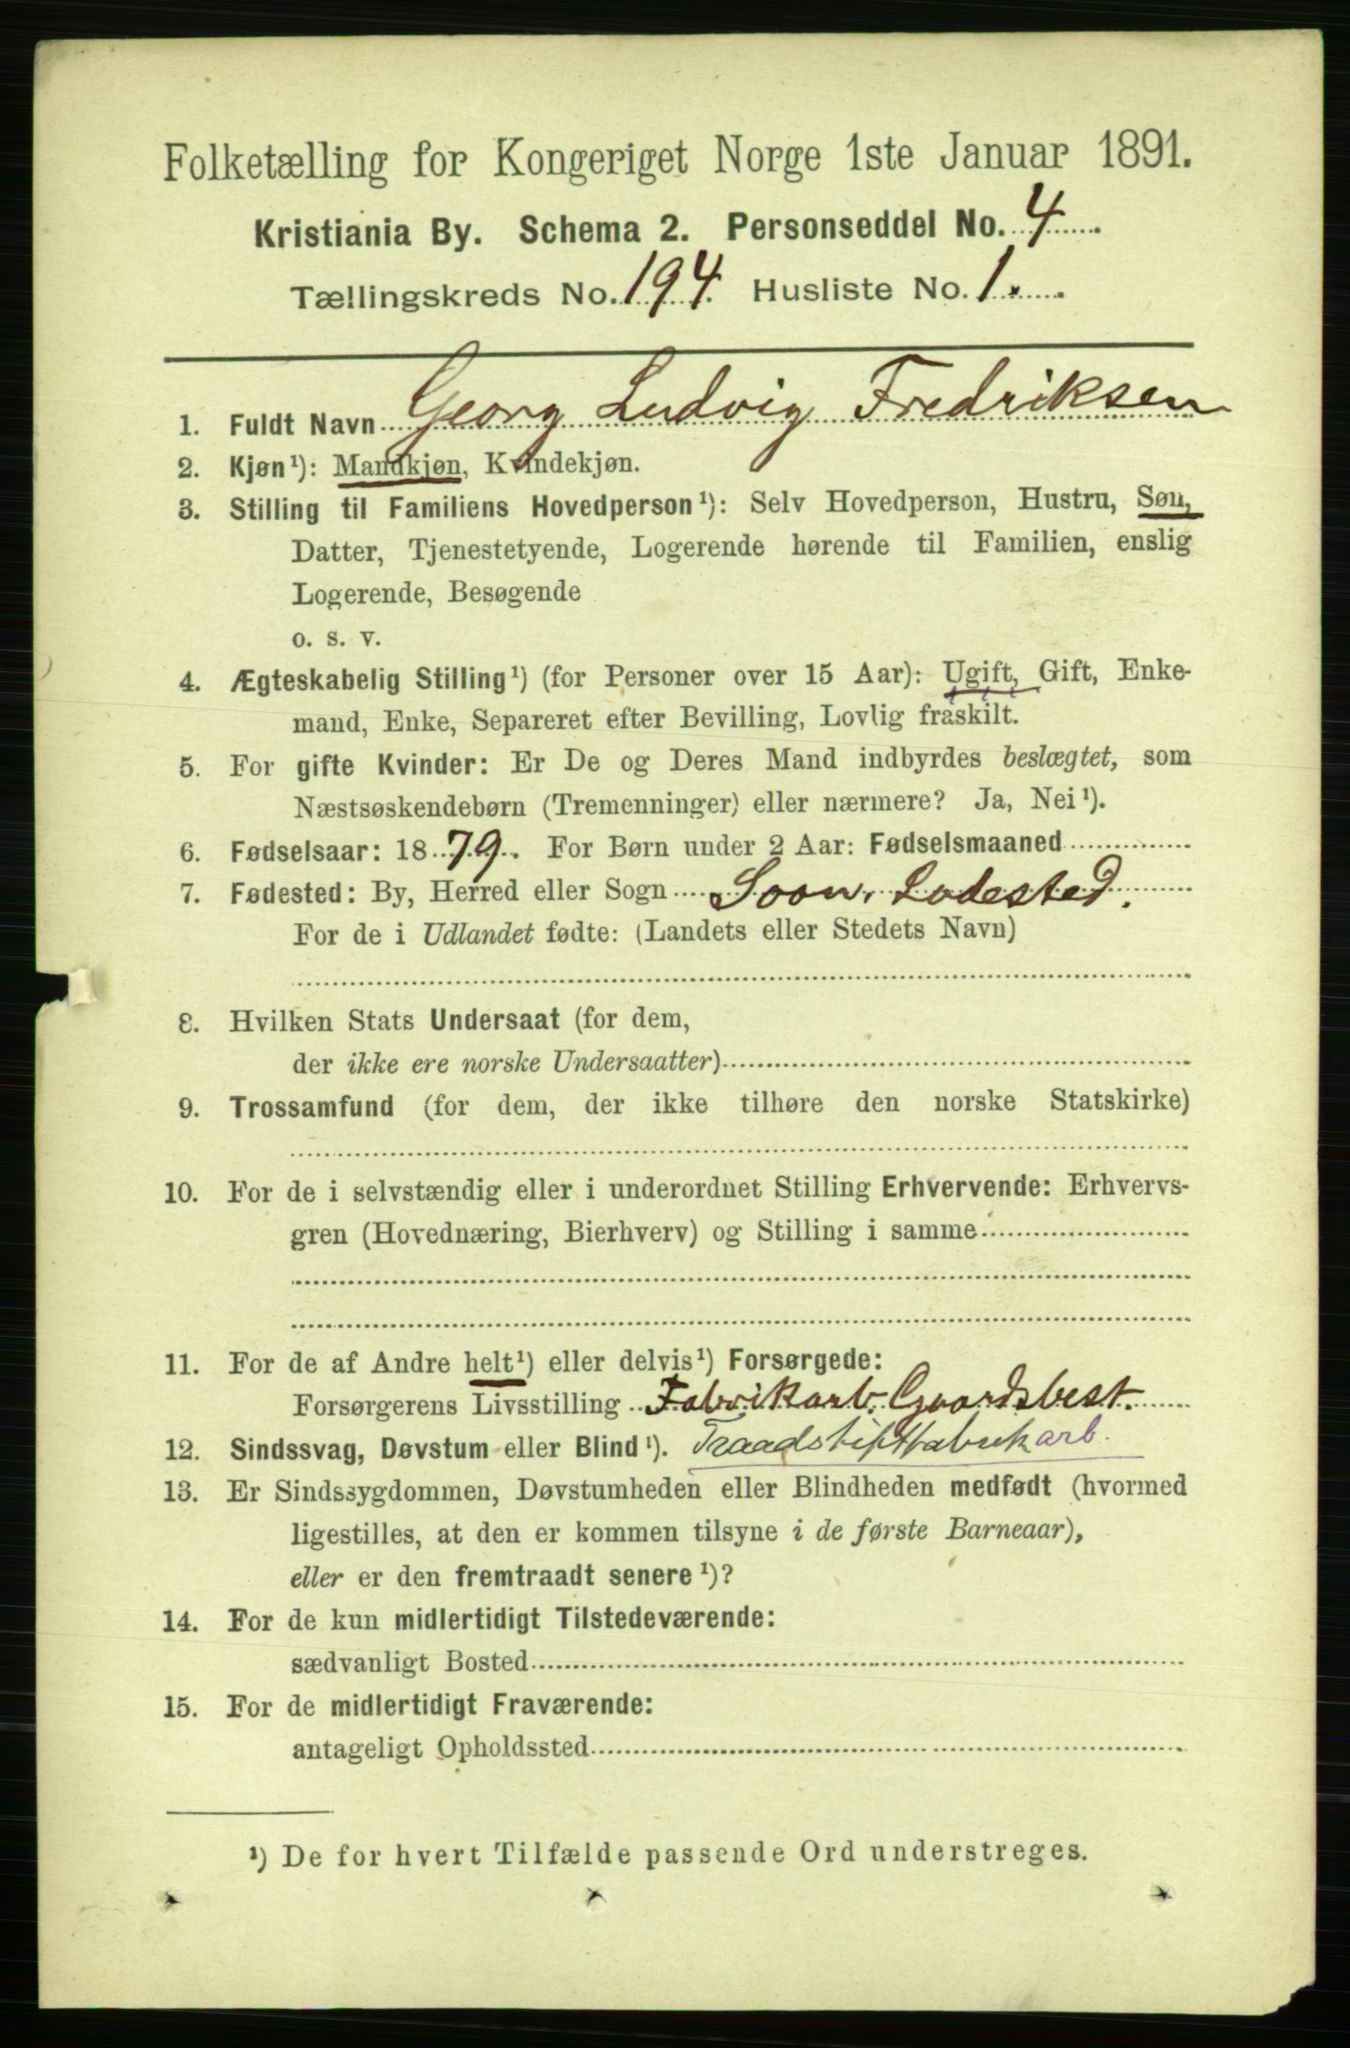 Folketælling for Kongeriget Norge 1ste Januar 1891.
Kristiania By. Schema 2. Personseddel No. 4
Tællingskreds No. 194. Husliste No. 1.
1. Fuldt Navn Georg Ludvig Fredriksen
2. Kjøn¹): Mandkjøn, Kvindekjøn.
3. Stilling til Familiens Hovedperson¹): Selv Hovedperson, Hustru, Søn,
Datter, Tjenestetyende, Logerende hørende til Familien, enslig
Logerende, Besøgende
o. s. v.
4. Ægteskabelig Stilling¹) (for Personer over 15 Aar): Ugift, Gift, Enke-
mand, Enke, Separeret efter Bevilling, Lovlig fraskilt.
5. For gifte Kvinder: Er De og Deres Mand indbyrdes beslægtet, som
Næstsøskendebørn (Tremenninger) eller nærmere? Ja, Nei¹).
6. Fødselsaar: 1879. For Børn under 2 Aar: Fødselsmaaned
7. Fødested: By, Herred eller Sogn Soon, Ladested.
For de i Udlandet fødte: (Landets eller Stedets Navn)
8. Hvilken Stats Undersaat (for dem,
der ikke ere norske Undersaatter)
9. Trossamfund (for dem, der ikke tilhøre den norske Statskirke)
10. For de i selvstændig eller i underordnet Stilling Erhvervende: Erhvervs-
gren (Hovednæring, Bierhverv) og Stilling i samme
11. For de af Andre helt¹) eller delvis¹) Forsørgede:
Forsørgerens Livsstilling Fabrikarb. Gaardsbest.
12. Sindssvag, Døvstum eller Blind¹). Traadstiftfabrikarb.
13. Er Sindssygdommen, Døvstumheden eller Blindheden medfødt (hvormed
ligestilles, at den er kommen tilsyne i de første Barneaar),
eller er den fremtraadt senere¹)?
14. For de kun midlertidigt Tilstedeværende:
sædvanligt Bosted
15. For de midlertidigt Fraværende:
antageligt Opholdssted
¹) De for hvert Tilfælde passende Ord understreges.